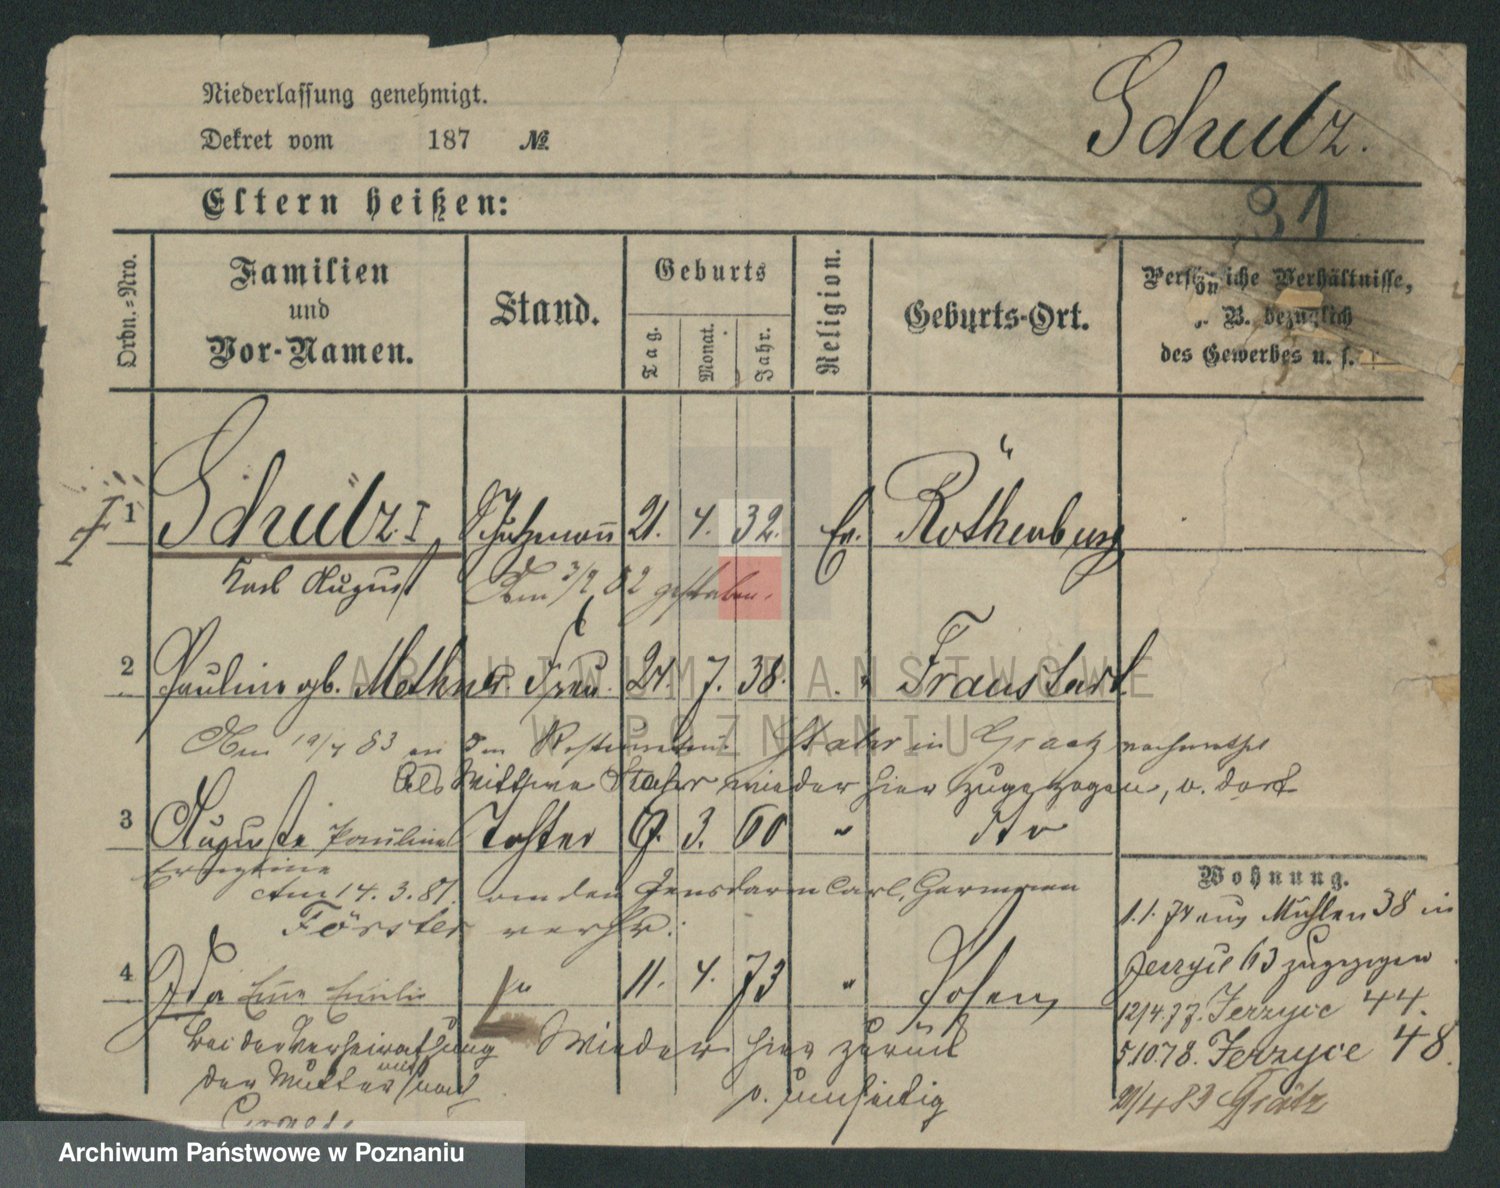 Niederlassung genehmigt.
Dekret vom 187 №
Schulz.
31
Eltern heißen:
Ordn.-Nro.
Familien
und
Vor-Namen.
Stand.
Geburts
Tag.
Monat.
Jahr.
Religion.
Geburts-Ort.
Persönliche Verhältnisse,
z. B. bezüglich
des Gewerbes u. s.
1 Schulz I Schutzmann 21. 4. 32. Ev. Rothenburg
Karl August Am 3/2 82 gestorben.
2 Pauline gb. Methner Frau 24. 7. 38. " Fraustadt
Am 19/4 83 an den Restaurateur Staher in Graetz
Als Wittwe Staher wieder hier zugezogen, v. dort
3 Auguste Pauline Tochter 9. 3. 60 " dto
Ernestine
Am 14. 3. 81. an den Gensdarm Carl, Hermann
Förster verh.
4 Ida Emilie " 11. 4. 73 " Posen
Bei der Verheirathung Wieder hier zurück
der Mutter mit nach
v. umseitig
Wohnung.
1.1.74 aus Mühlen 38 in
Jerzyce 63 zugezogen
12/4.77. Jerzyce 44.
5.10.78. Jerzyce 48.
21/4 83 Grätz
ARCHIWUM PAŃSTWOWE
W POZNANIU
Archiwum Państwowe w Poznaniu